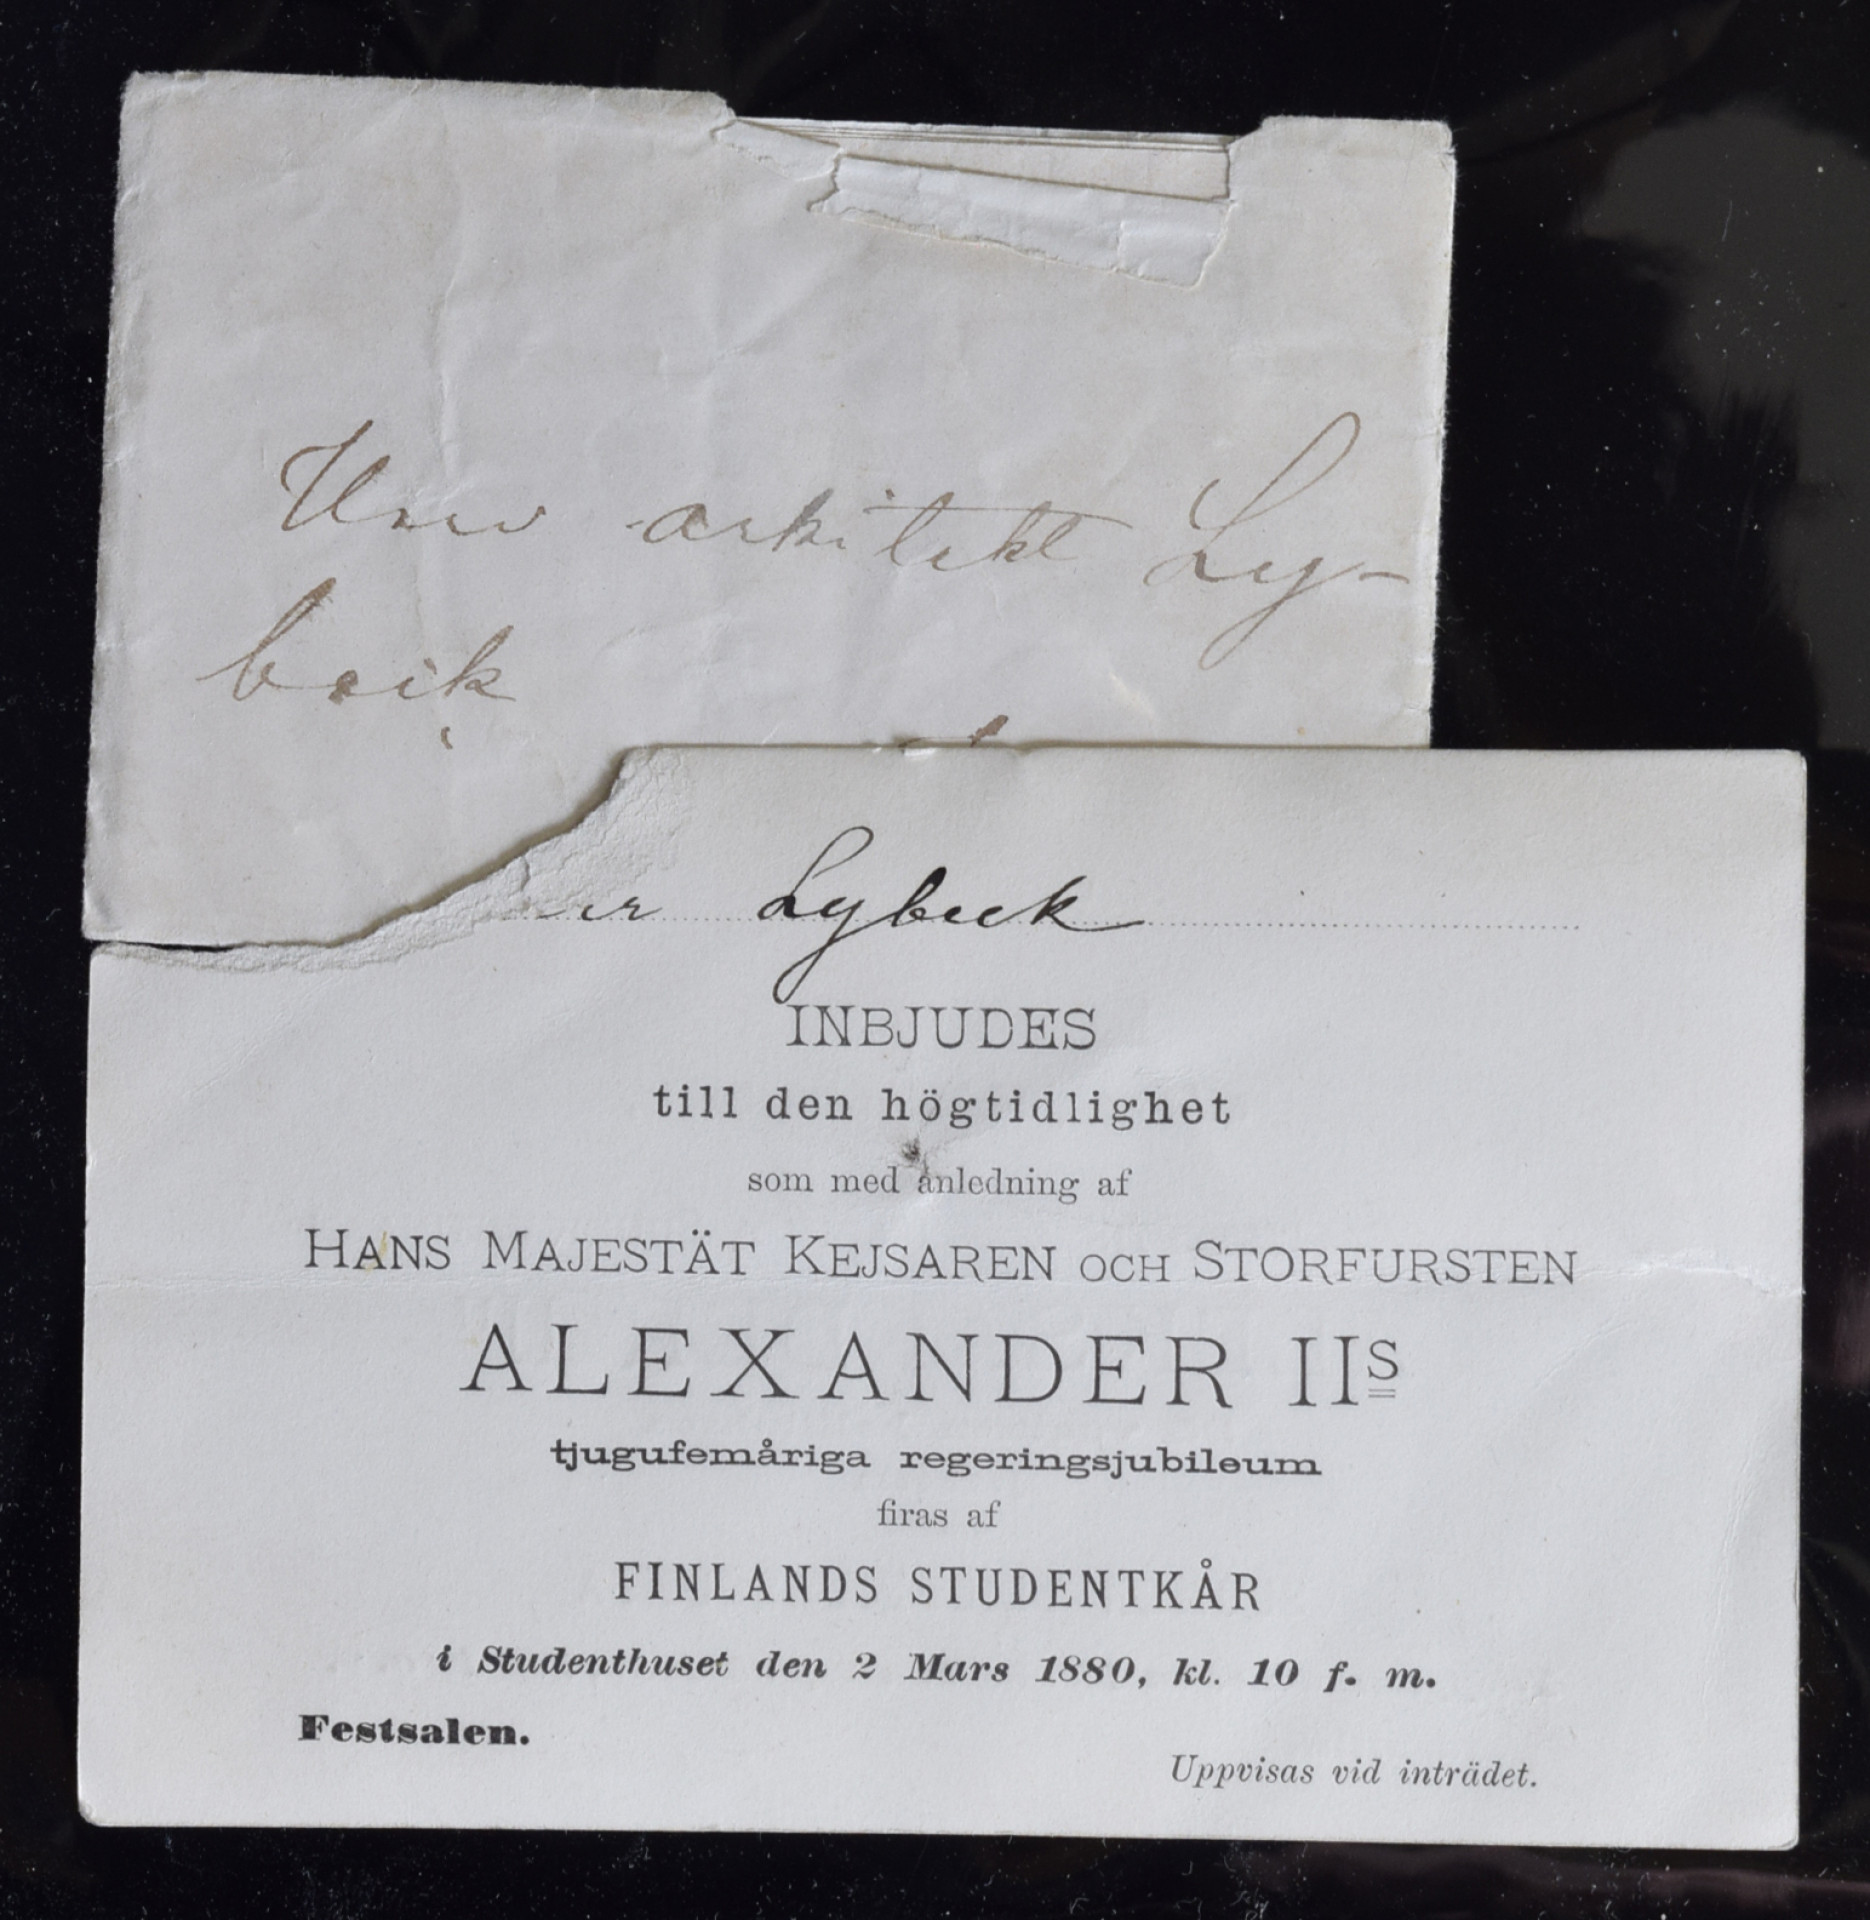 arkitekt Ly-
beck
Lybeck
INBJUDES
till den högtidlighet
som med anledning af
HANS MAJESTÄT KEJSAREN OCH STORFURSTEN
ALEXANDER IIS
tjugufemåriga regeringsjubileum
firas af
FINLANDS STUDENTKÅR
i Studenthuset den 2 Mars 1880, kl. 10 f. m.
Festsalen.
Uppvisas vid inträdet.